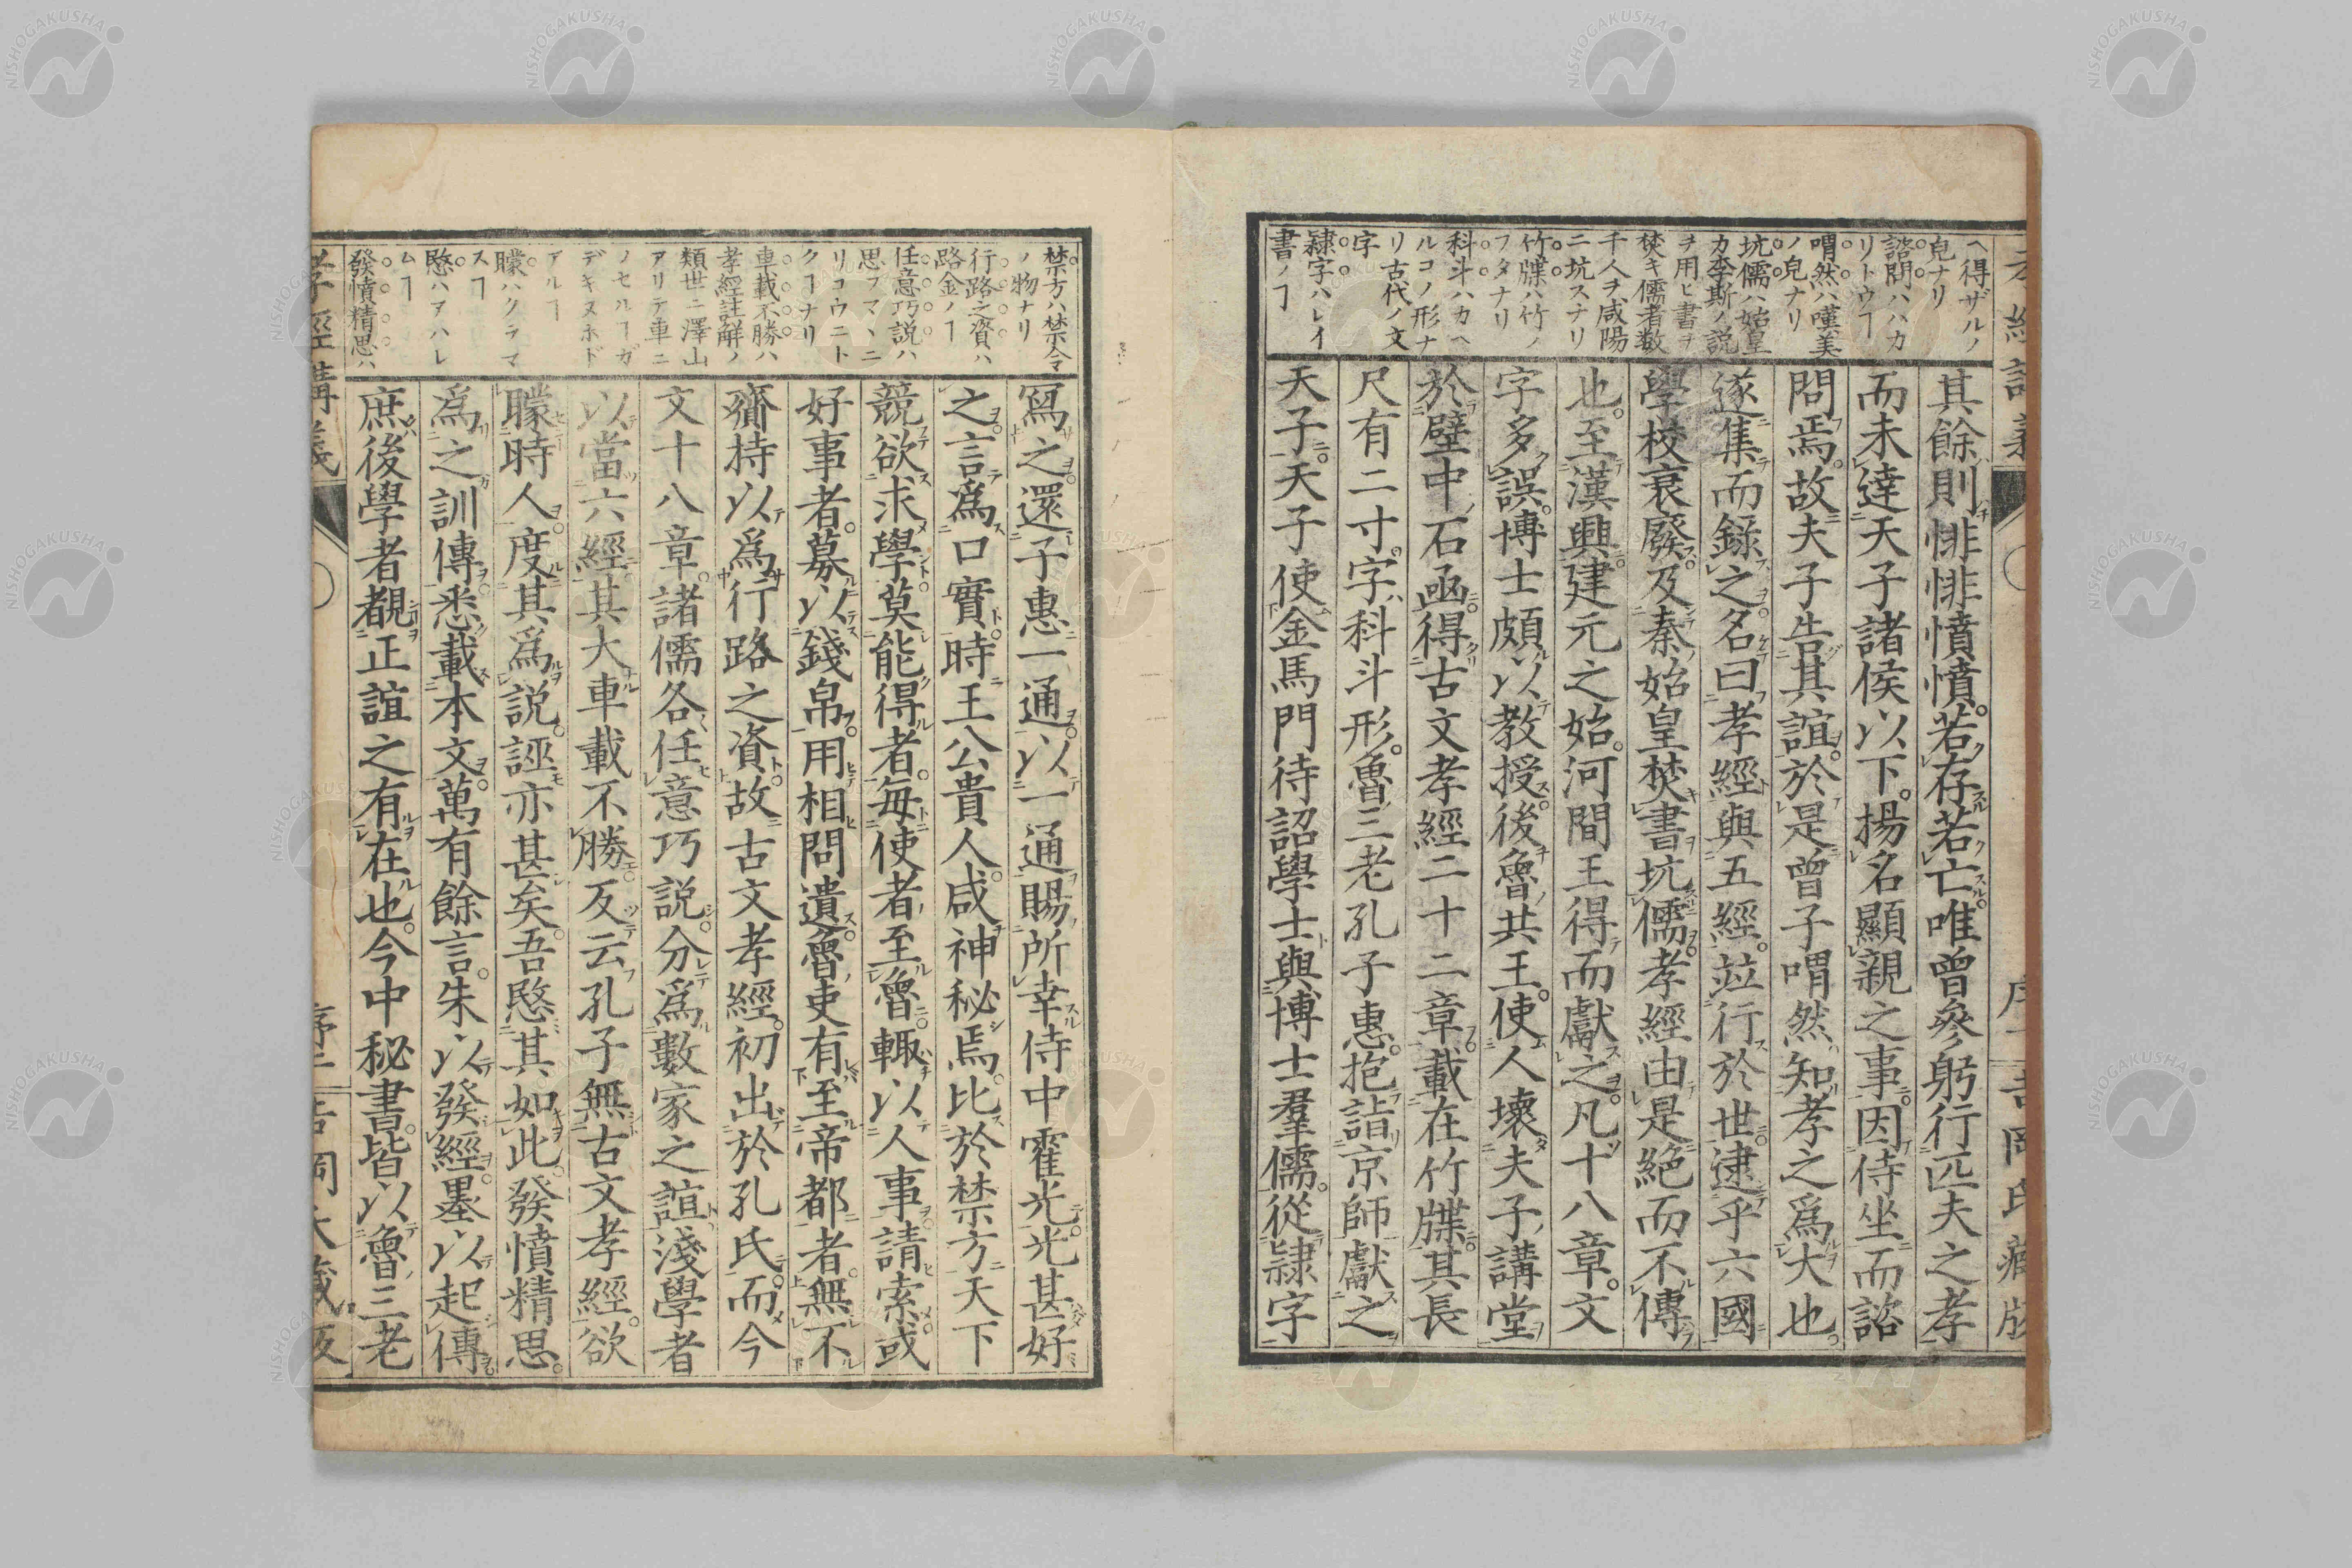 ヘ得ザルノ
皃ナリ
諮問ハハカ
リトウヿ
喟然ハ嘆美
ノ皃ナリ
坑儒ハ始皇
カ李斯ノ説
ヲ用ヒ書ヲ
焚キ儒者数
千人ヲ咸陽
ニ坑スナリ
竹牒ハ竹ノ
フタナリ
科斗ハカヘ
ルコノ形ナ
リ古代ノ文
字
隷字ハレイ
書ノヿ
其餘則悱悱憤憤若存若亡唯曾參躬行匹夫之孝
而未達天子諸侯以下揚名顯親之事因侍坐而諮
問焉故夫子告其誼於是曾子喟然知孝之爲大也
遂集而錄之名曰孝經與五經竝行於世逮乎六國
學校衰廢及秦始皇焚書坑儒孝經由是絶而不傳
也至漢興建元之始河間王得而獻之凡十八章文
字多誤博士頗以教授後魯共王使人壞夫子講堂
於壁中石函得古文孝經二十二章載在竹牒其長
尺有二寸字科斗形魯三老孔子惠抱詣京師獻之
天子天子使金馬門待詔學士與博士羣儒從隷字
禁方ハ禁令
ノ物ナリ
行路之資ハ
路金ノヿ
任意巧説ハ
思フマヽニ
リコウニト
クヿナリ
車載不勝ハ
孝經註解ノ
類世ニ澤山
アリテ車ニ
ノセルヿガ
デキヌホド
アルヿ
矇ハクラマ
スヿ
愍ハアハレ
ムヿ
發憤精思ハ
寫之還子惠一通以一通賜所幸侍中霍光光甚好
之言爲口實時王公貴人咸神秘焉比於禁方天下
競欲求學莫能得者毎使者至魯輙以人事請索或
好事者募以錢帛用相問遺魯吏有至帝都者無不
齎持以爲行路之資故古文孝經初出於孔氏而今
文十八章諸儒各任意巧説分爲數家之誼淺學者
以當六經其大車載不勝反云孔子無古文孝經欲
矇時人度其爲説誣亦甚矣吾愍其如此發憤精思
爲之訓傳悉載本文萬有餘言朱以發經墨以起傳
庶後學者覩正誼之有在也今中秘書皆以魯三老
孝經講義
序二